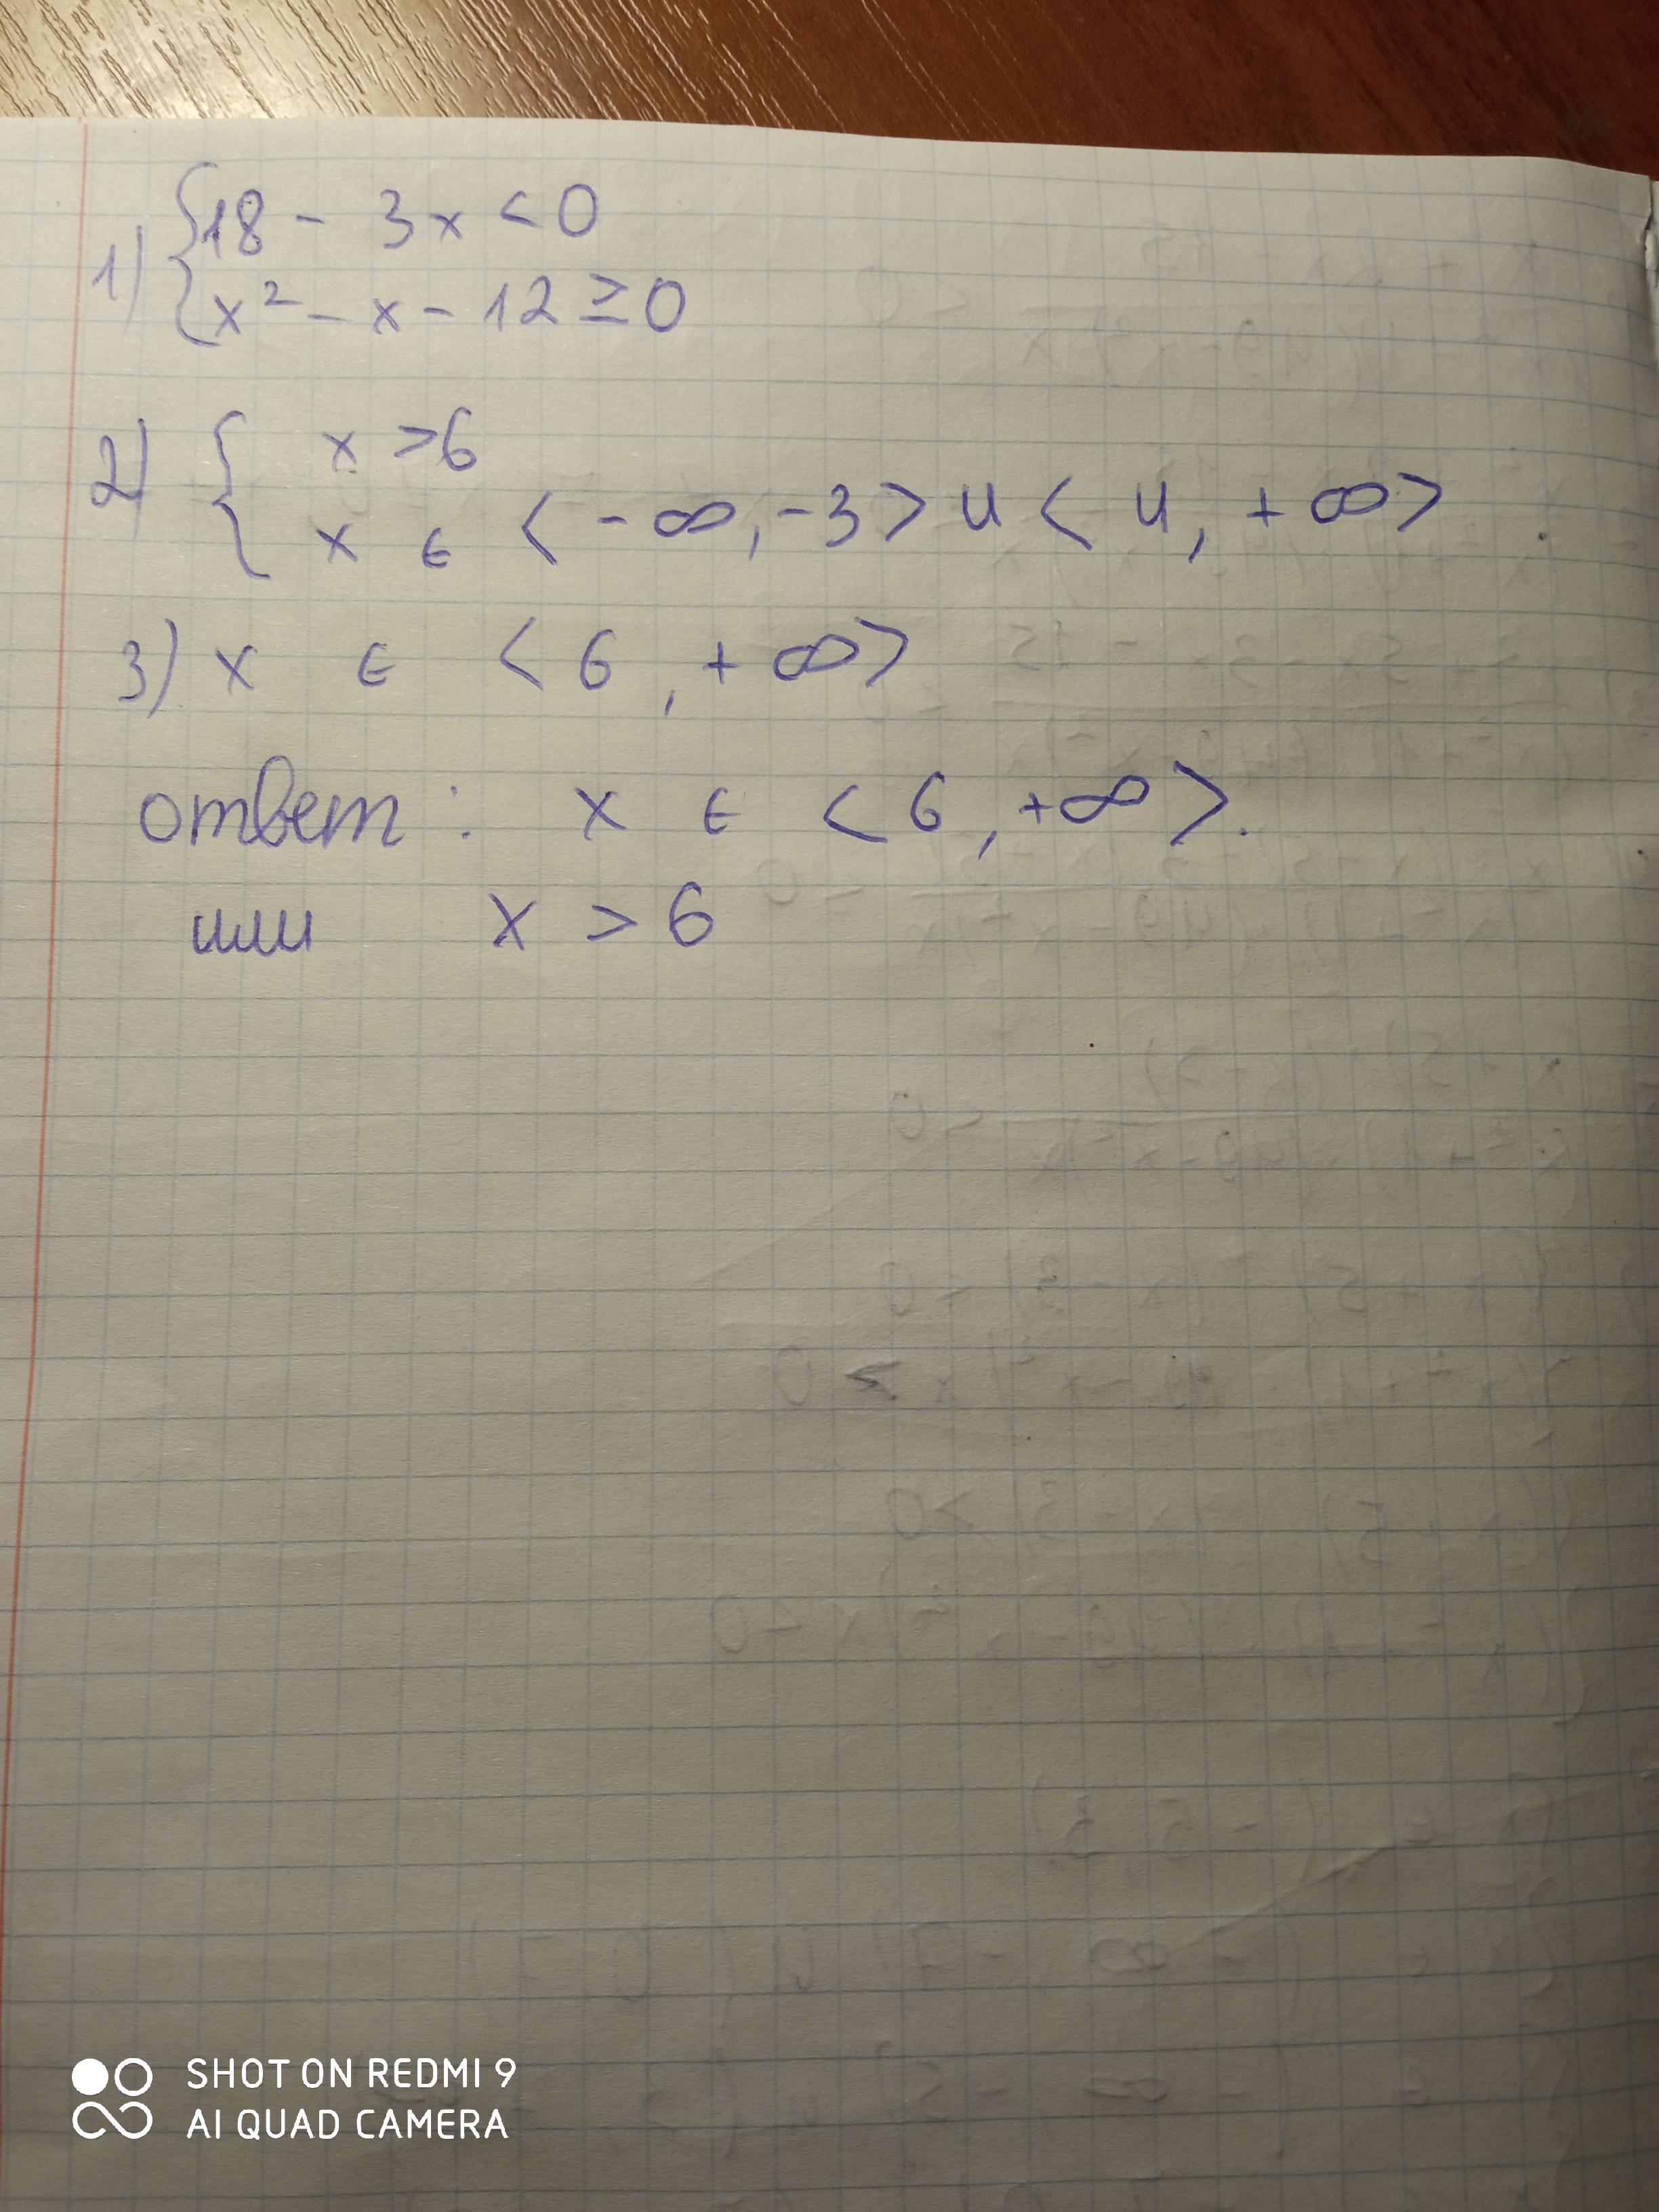 1) { 18 - 3x < 0
{ x² - x - 12 ≥ 0
2) { x > 6
{ x ∈ < -∞, -3 > ∪ < 4, +∞ > .
3) x ∈ < 6, +∞ >
ответ: x ∈ < 6, +∞ >.
или x > 6
SHOT ON REDMI 9
AI QUAD CAMERA